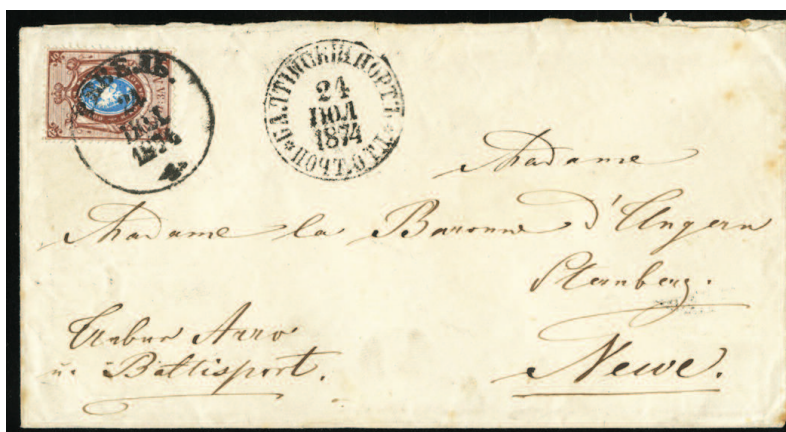 РЕВЕЛЬ.
1874
БАЛТІЙСКІЙ ПОРТЪ
24
ІЮЛ
1874
ПОЧТ. ОТД.
Madame
Madame la Baronne d'Ungern
Sternberg.
Baltisport.
Newe.